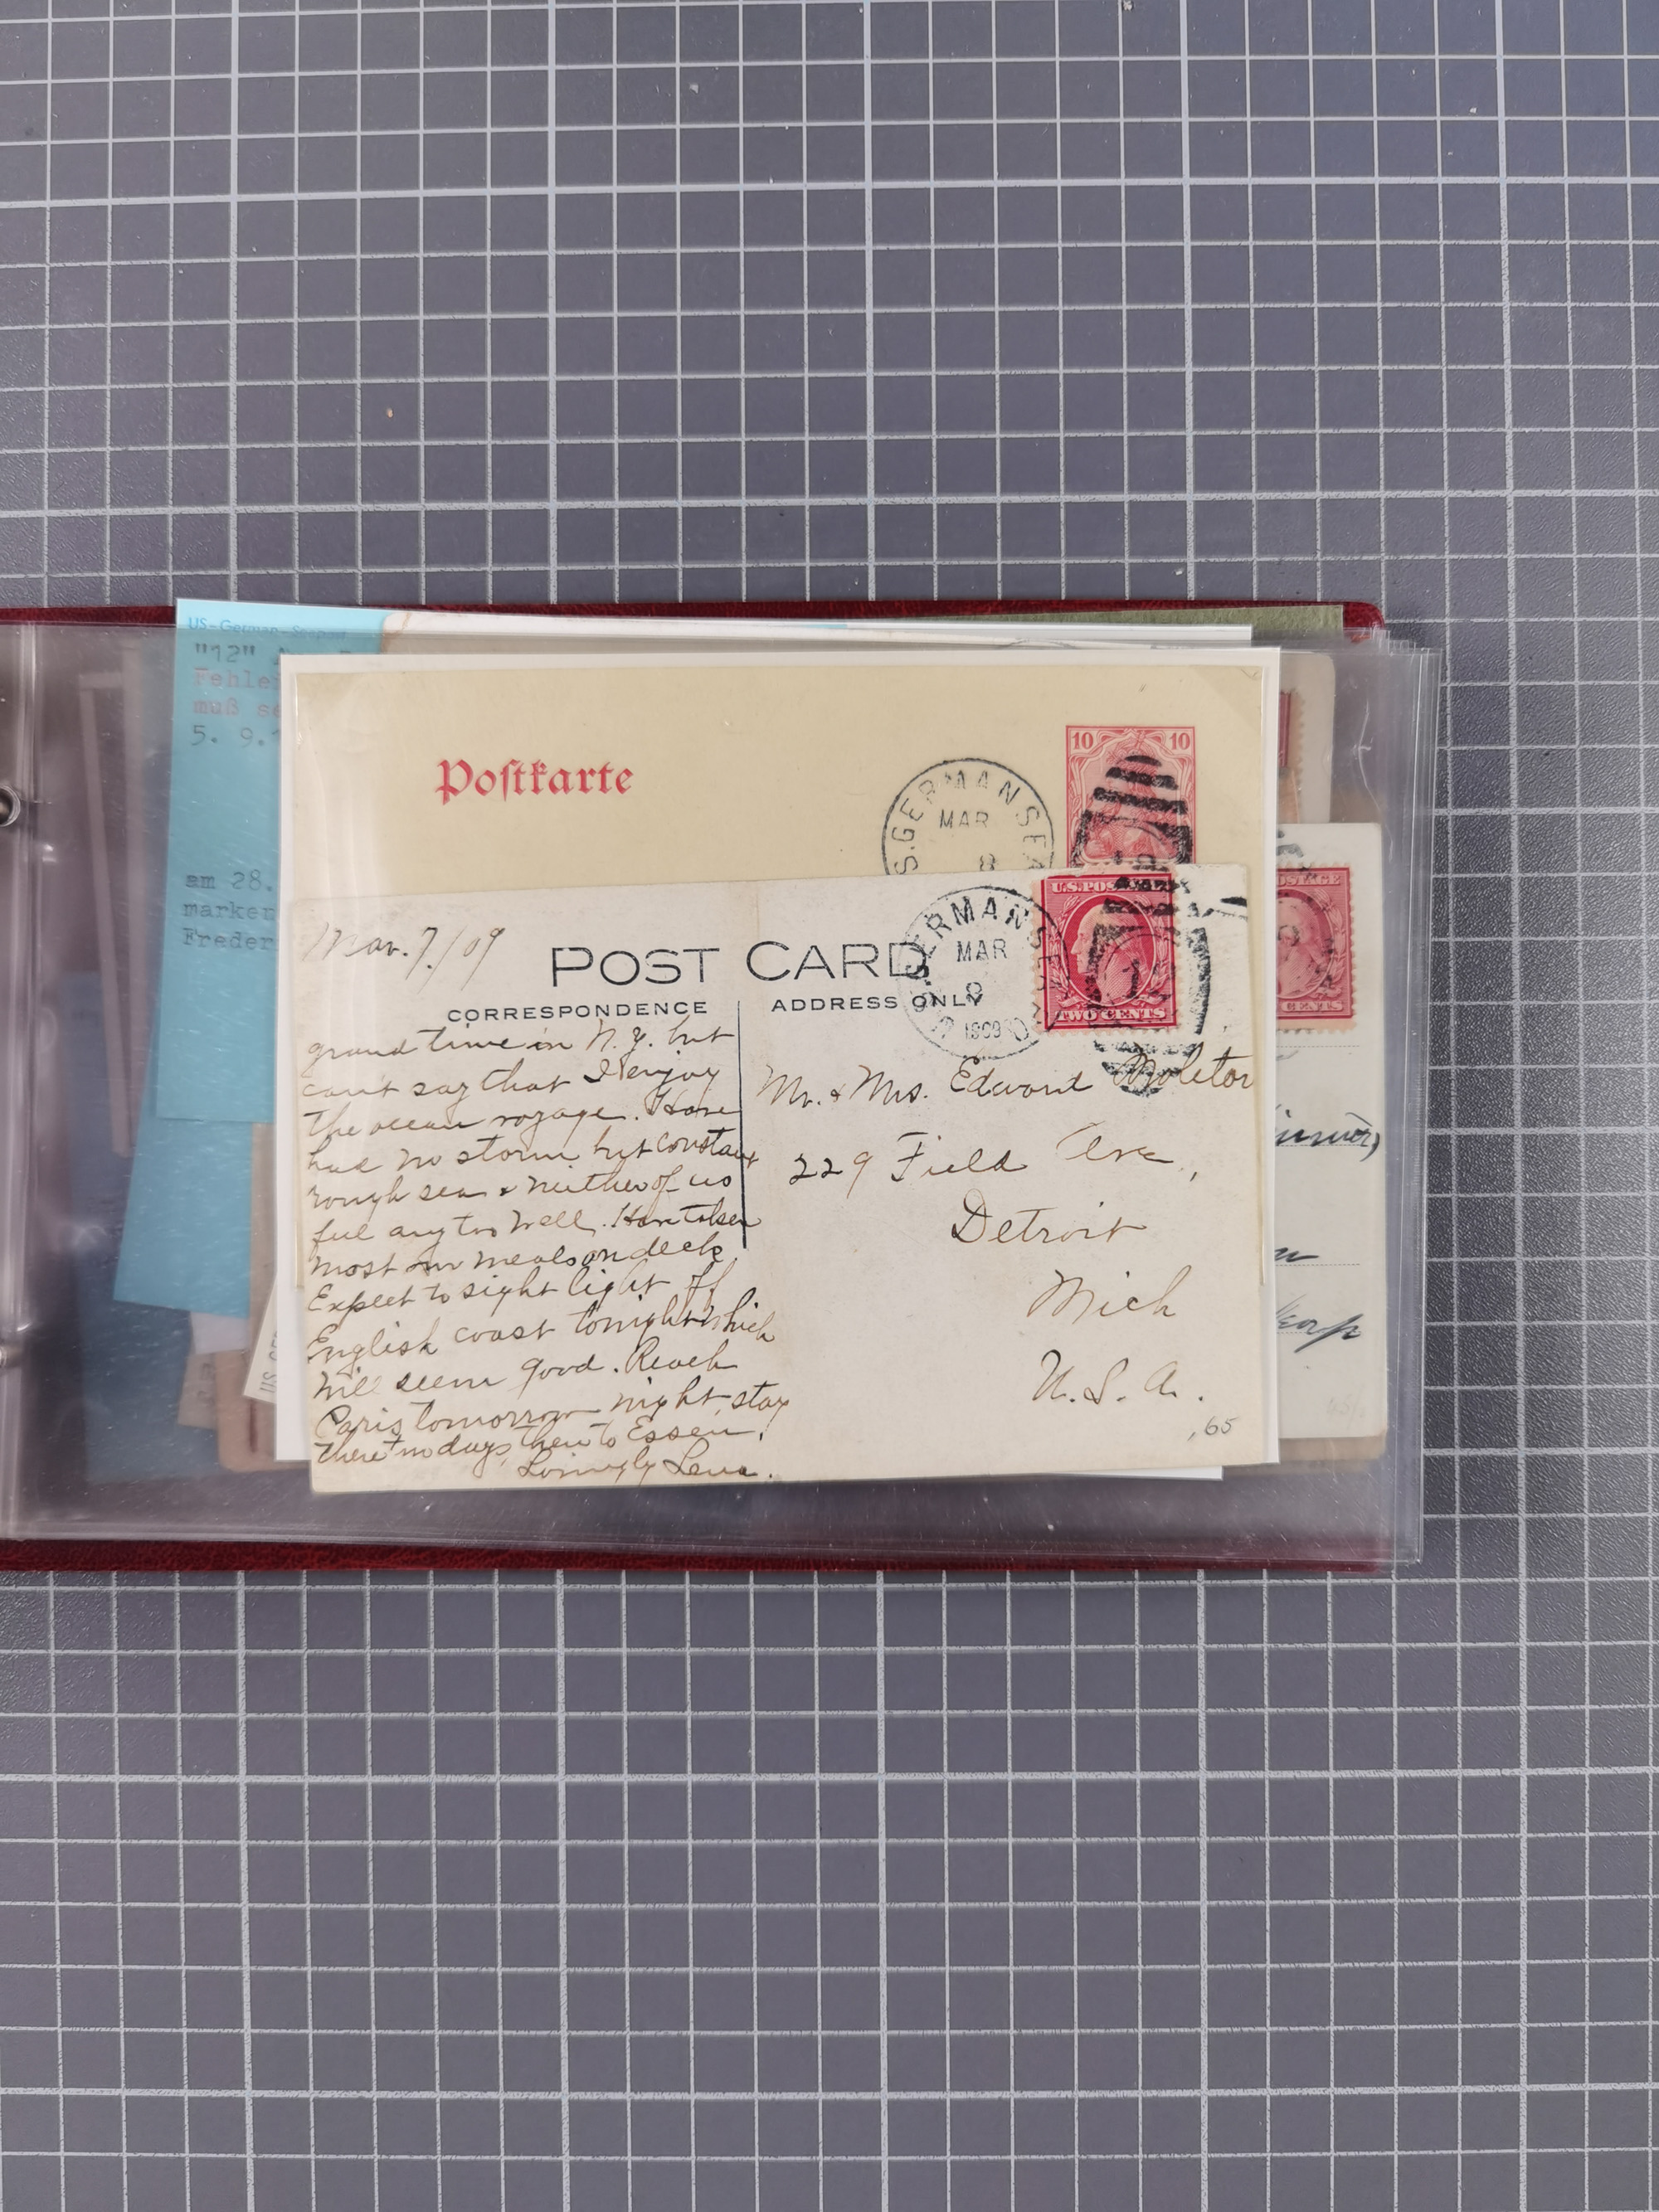 US-German-Seepost
"12"
Fehle
muß se
5. 9.
am 28.
marken
Freder
Postkarte
10 10
S. GERMAN SEA
MAR
8
Mar. 7./09
POST CARD
CORRESPONDENCE
ADDRESS ONLY
GERMAN SEA
MAR
1909
U.S. POSTAGE
TWO CENTS
grand time in N.Y. but
can't say that I enjoy
the ocean voyage. Have
had no storm but constant
rough sea & neither of us
feel any too well. Have taken
most our meals on deck.
Expect to sight light off
English coast tonight which
will seem good. Reach
Paris tomorrow night, stay
there two days, then to Essen.
Lovingly Lena.
Mr. & Mrs. Edward Moletor
229 Field Ave,
Detroit
Mich
U.S.A.
,65
OSTAGE
CENTS